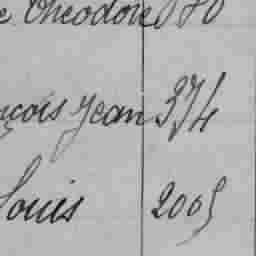 Théodore
çois Jean 374
Louis 2005